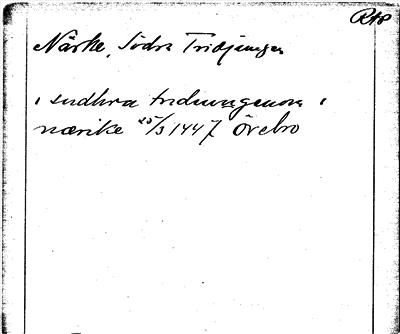 RAp
Närke, Södra Tridjungen
i sudhra tridiungenom i
nærike 25/3 1447 Örebro